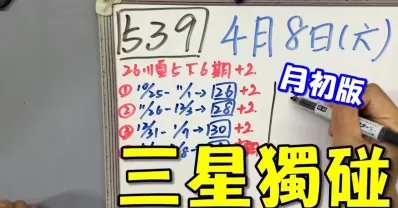 539 4月8日(六)
26順5下6期+2
月初版
① 10/25- 11/1 → 126 +2
② 11/26 - 12/3 → 128 +2
③ 12/31 - 1/9 → 130 +2
三星獨碰